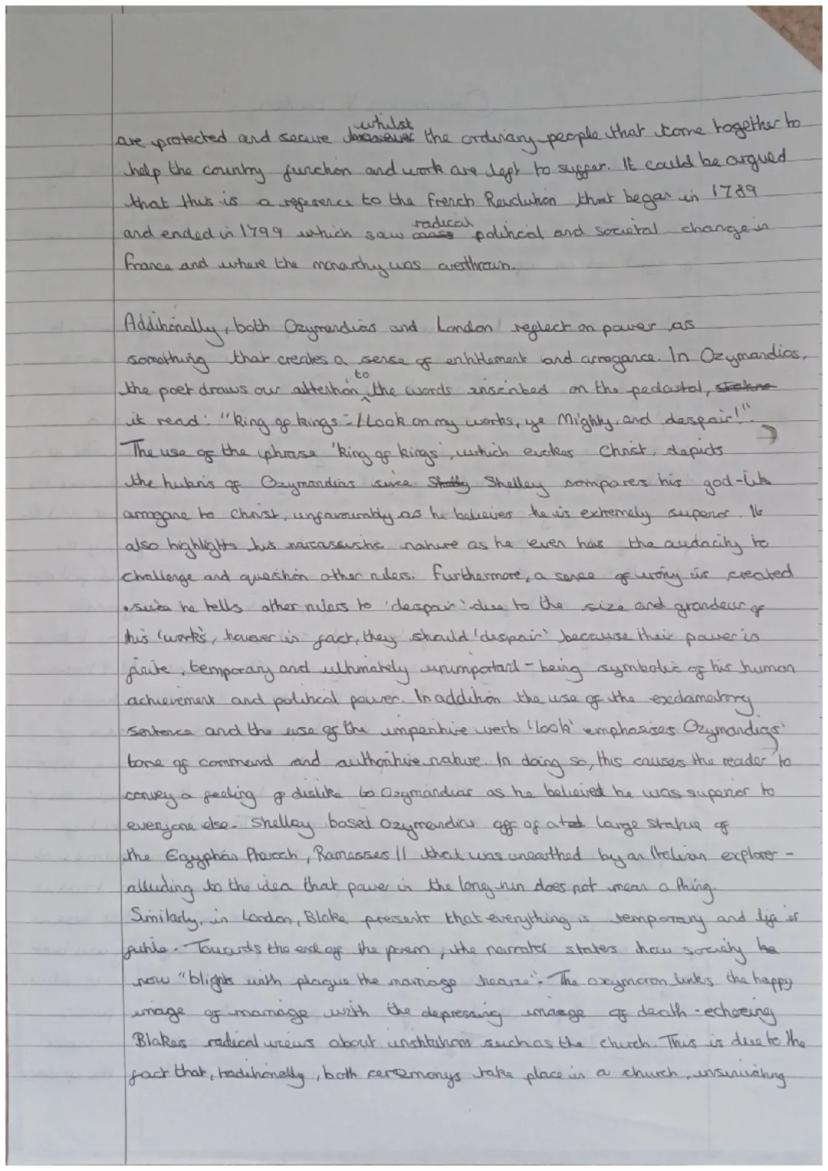 whilst
are protected and secure the ordinary people that come together to
help the country function and work are left to suffer. It could be argued
that this is a reference to the French Revolution that began in 1789
radical
and ended in 1799 which saw political and societal change in
France and where the monarchy was overthrown.
Additionally, both Ozymandias and London reflect on power as
something that creates a sense of entitlement and arrogance. In Ozymandias,
to
the poet draws our attention the words inscribed on the pedastal,
it read: "King of kings :/ Look on my works, ye Mighty, and despair!"
The use of the phrase 'king of kings', which evokes Christ, depicts
the hubris of Ozymandias since Shelley compares his god-like
arrogane to Christ, unfavourably as he believes he is extremely superior. It
also highlights his narcassistic nature as he even has the audacity to
challenge and question other rulers. Furthermore, a sense of irony is created
since he tells other rulers to 'despair' due to the size and grandeur of
his 'works', however in fact, they should 'despair' because their power is
finite, temporary and ultimately unimportant - being symbolic of his human
achievement and political power. In addition the use of the exclamatory
sentence and the use of the imperitive verb 'look' emphasises Ozymandias'
tone of command and authoritive nature. In doing so, this causes the reader to
convey a feeling of dislike to Ozymandias as he believed he was superior to
everyone else. Shelley based Ozymandias off of a large statue of
the Egyptian Pharoah, Ramesses II that was unearthed by an Italian explorer -
alluding to the idea that power in the long run does not mean a thing.
Similarly, in London, Blake presents that everything is temporary and life is
futile. Towards the end of the poem, the narrator states how society he
now "blights with plague the marriage hearse". The oxymoron links the happy
image of marriage with the depressing image of death - echoeing
Blakes radical views about institutions such as the church. This is due to the
fact that, traditionally, both ceremonys take place in a church, insinuating